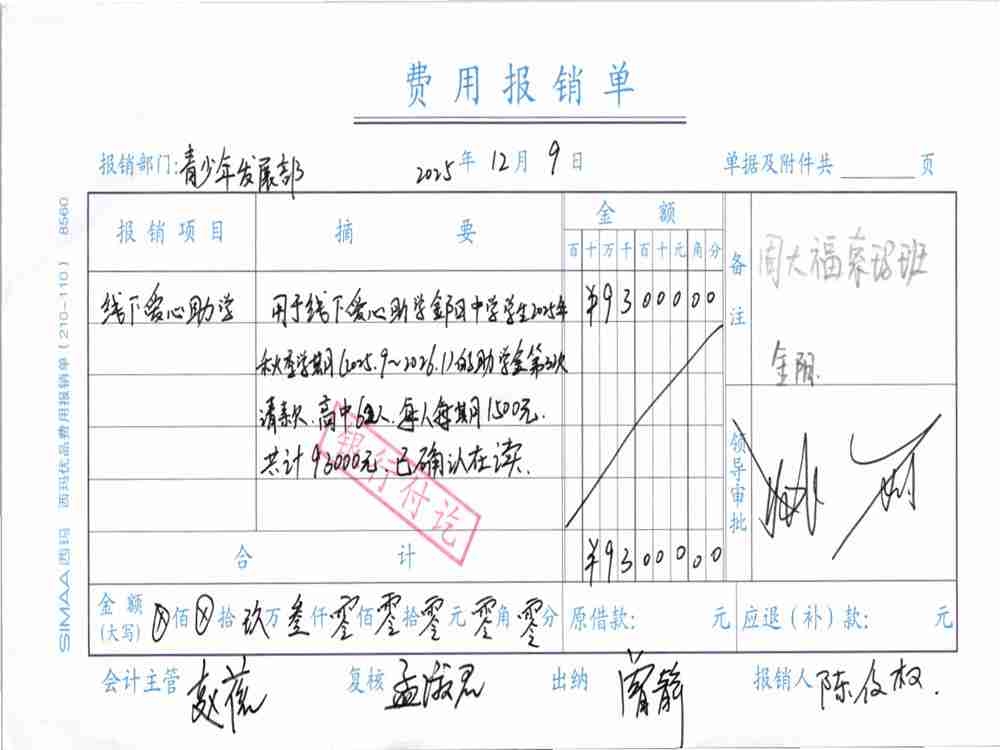 费用报销单
报销部门:青少年发展部 2025年12月9日 单据及附件共 页
报销项目 摘要 金额 备注 周大福 班
百十万千百十元角分
线下爱心助学 用于线下爱心助学 中学学生2025年 ¥9300000
秋季学期(2025.9~2026.1)的助学金第 次
请款.高中62人.每人每期1500元.
共计93000元.已确认在读.
银行付讫
领导审批
合计 ¥9300000
金额(大写) ⊗佰⊗拾玖万叁仟零佰零拾零元零角零分 原借款: 元 应退(补)款: 元
会计主管 复核 孟淑君 出纳 报销人 陈
SIMAA西玛 西玛优品费用报销单(210-110) 8560